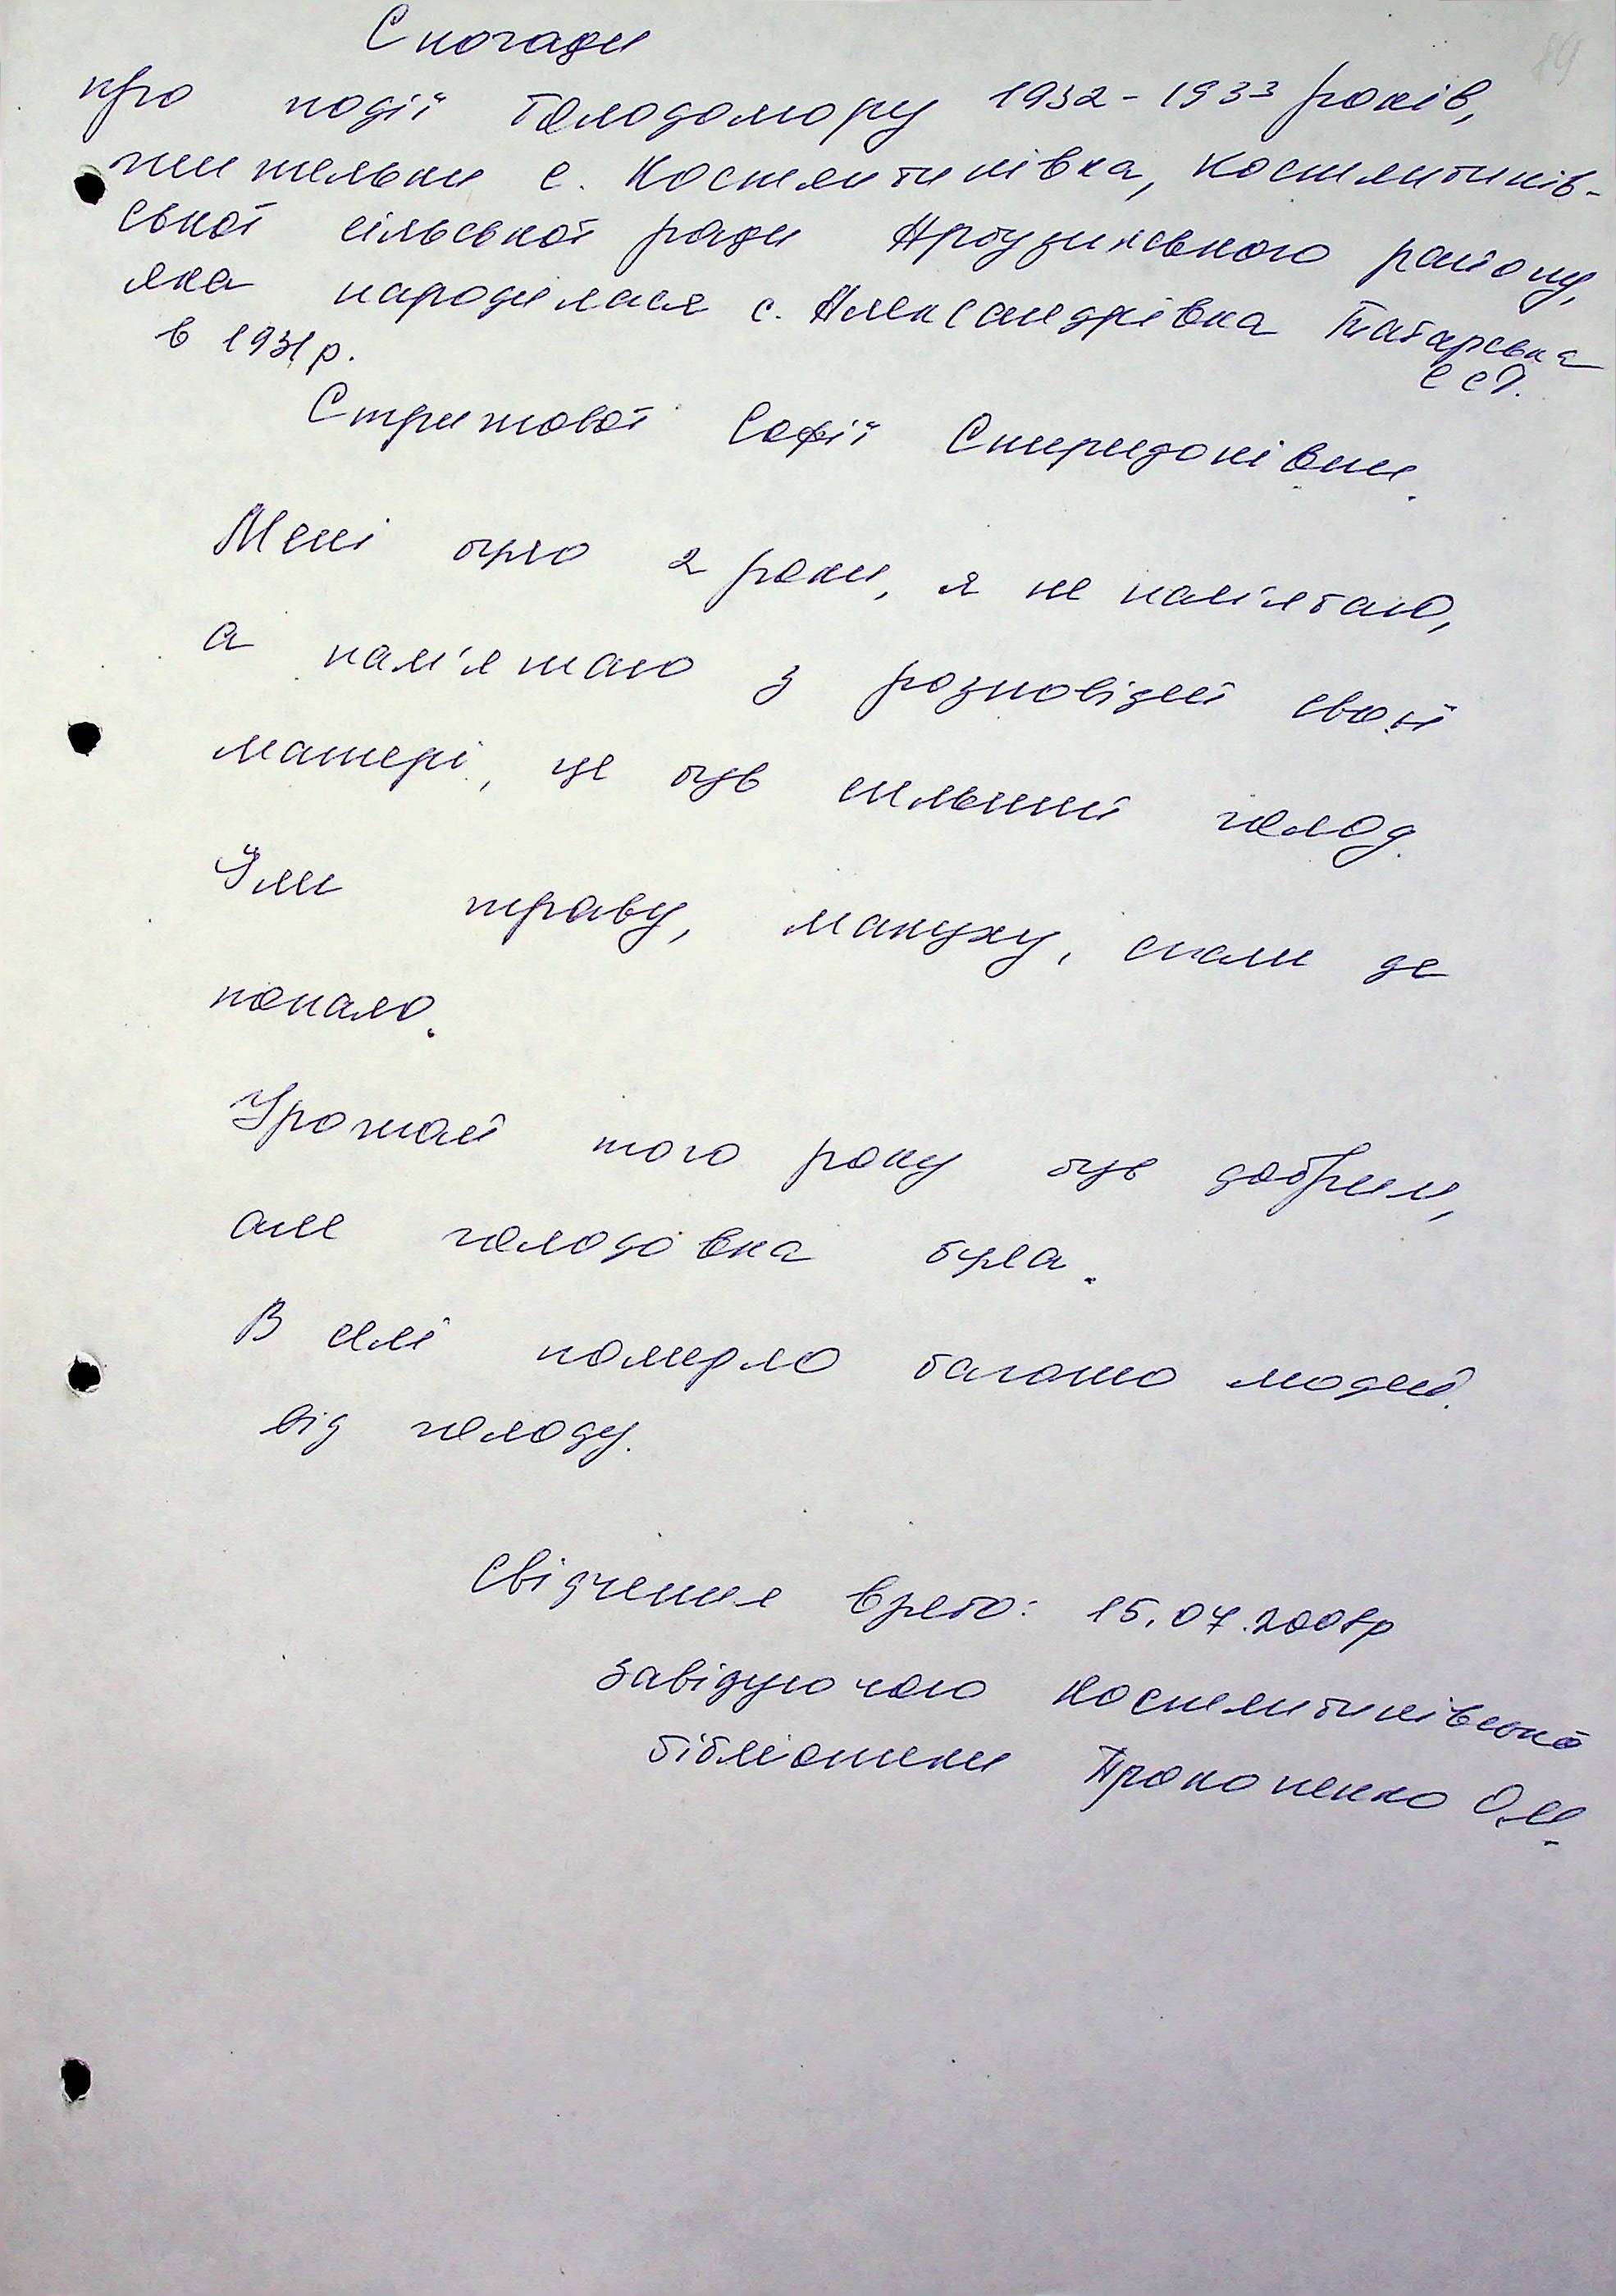 Спогади
89
про події Голодомору 1932-1933 років,
жительки с. Костянтинівка, Костянтинів-
ської сільської ради Арбузинського району,
яка народилася с. Александрівка Татарська
в 1931 р.
ССР.
Стрижової Софії Спиридонівни.
Мені було 2 роки, я не пам'ятаю,
а пам'ятаю з розповідей своєї
матері, це був сильний голод.
Їли траву, макуху, спали де
попало.
Урожай того року був добрим,
але голодовка була.
В селі померло багато людей
від голоду.
Свідчення взято: 15.07.2008р
Завідуючою Костянтинівської
бібліотеки Прокопенко О.М.